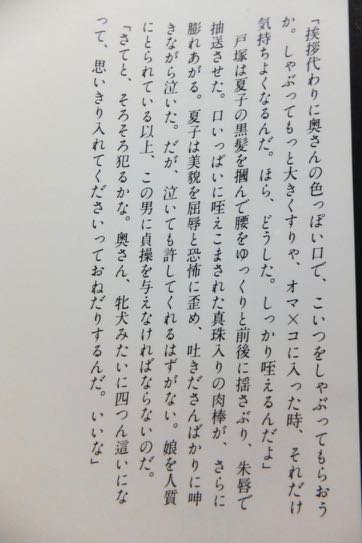 「挨拶代わりに奥さんの色っぽい口で、こいつをしゃぶってもらおう
か。しゃぶってもっと大きくすりゃ、オマ×コに入った時、それだけ
気持ちよくなるんだ。ほら、どうした。しっかり咥えるんだよ」
　戸塚は夏子の黒髪を摑んで腰をゆっくりと前後に揺さぶり、朱唇で
抽送させた。口いっぱいに咥えこまされた真珠入りの肉棒が、さらに
膨れあがる。夏子は美貌を屈辱と恐怖に歪め、吐きださんばかりに呻
きながら泣いた。だが、泣いても許してくれるはずがない。娘を人質
にとられている以上、この男に貞操を与えなければならないのだ。
「さてと、そろそろ犯るかな。奥さん、牝犬みたいに四つん這いにな
って、思いきり入れてくださいっておねだりするんだ。いいな」